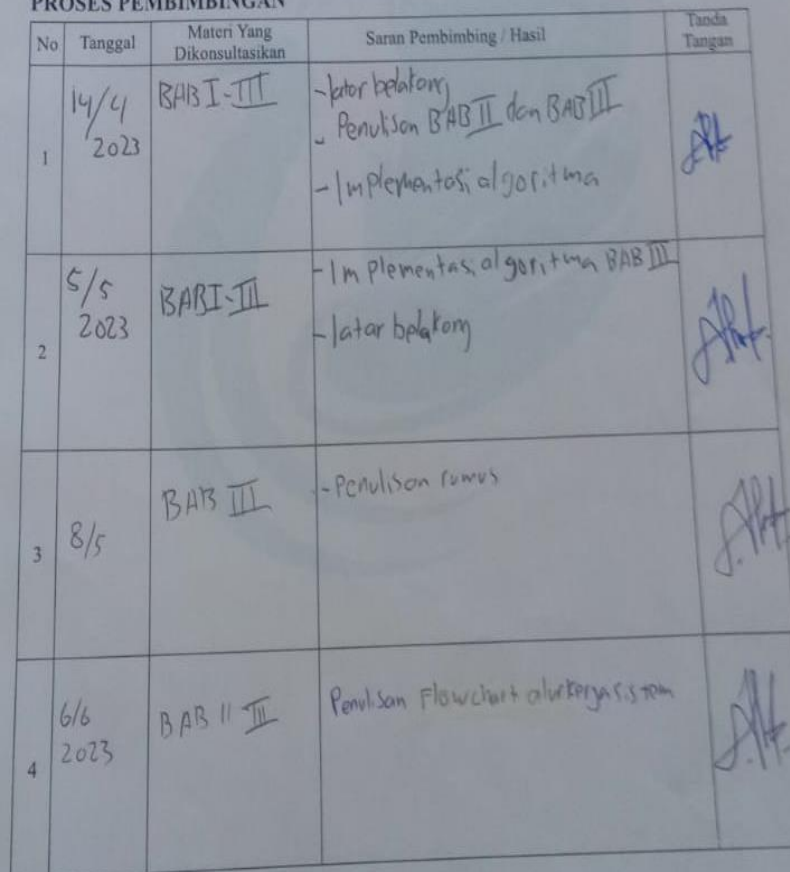 PROSES PEMBIMBINGAN
No Tanggal Materi Yang Dikonsultasikan Saran Pembimbing / Hasil Tanda Tangan
1
14/4
2023
BAB I-III
-latar belakang
- Penulisan BAB II dan BAB III
-Implementasi algoritma
2
5/5
2023
BAB I-III
-Implementasi algoritma BAB III
-latar belakang
3
8/5
BAB III
-Penulisan rumus
4
6/6
2023
BAB II III
Penulisan Flowchart alur kerja sistem